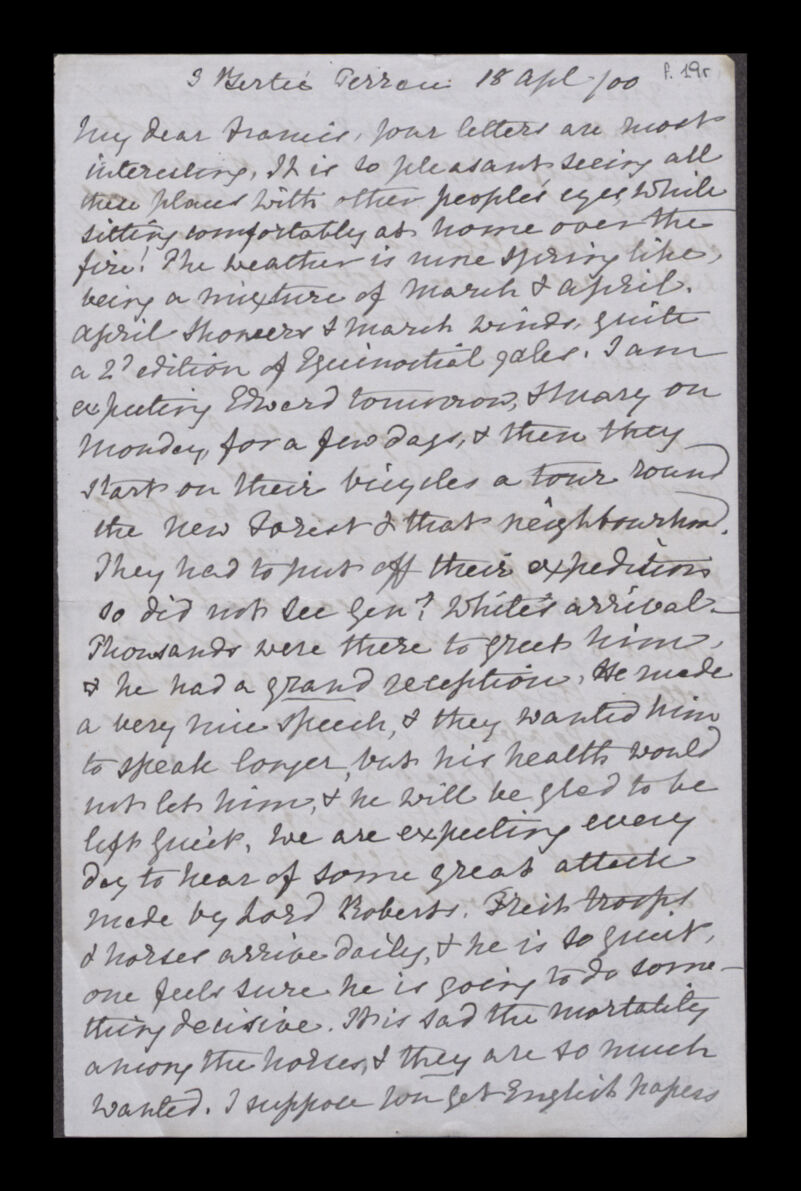 3 Bertie Terrace 18 Apl /00 f. 19r
My dear Francis, your letters are most
interesting, It is so pleasant seeing all
these places with other people's eyes, while
sitting comfortably at home over the
fire! The weather is more spring like,
being a mixture of March & April.
April Showers & March winds, quite
a 2d edition of Equinoctial gales. I am
expecting Edward tomorrow, & Mary on
Monday, for a few days, & then they
start on their bicycles a tour round
the New Forest & that neighbourhood.
They had to put off their expedition
so did not see Genl White's arrival_
Thousands were there to greet him,
& he had a grand reception, He made
a very nice speech, & they wanted him
to speak longer, but his health would
not let him, & he will be glad to be
left quiet, We are expecting every
day to hear of some great attack
made by Lord Roberts. Fresh troops
& horses arrive daily, & he is so quiet,
one feels sure he is going to do some-
thing decisive. It is sad the mortality
among the horses, & they are so much
wanted. I suppose you get English papers